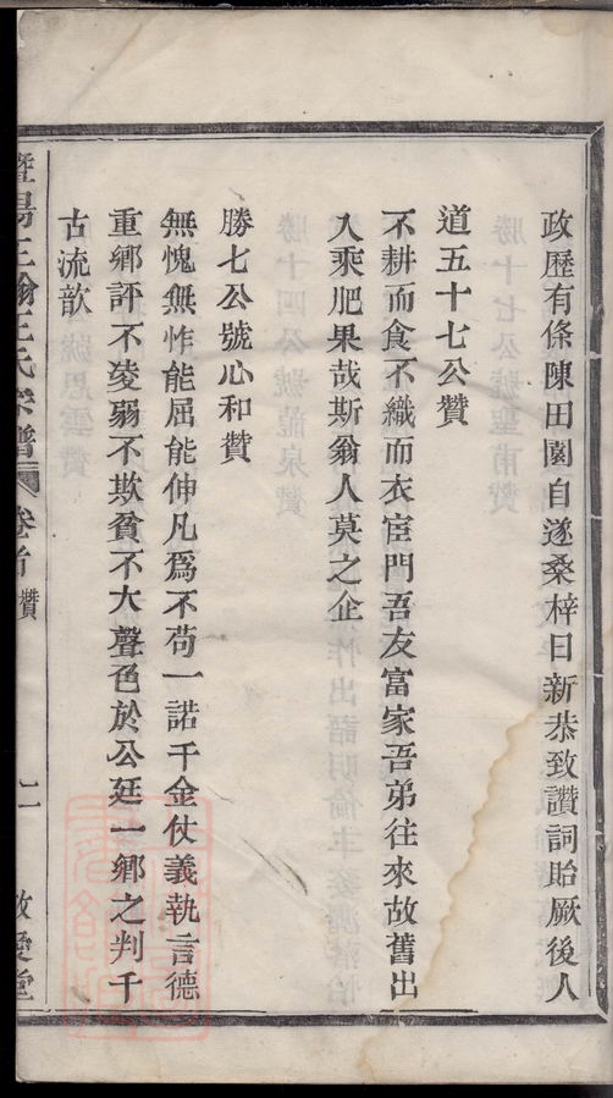 政歷有條陳田園自遂桑梓日新恭致讚詞貽厥後人
道五十七公贊
不耕而食不織而衣宦門吾友富家吾弟往來故舊出
入乘肥果哉斯翁人莫之企
勝七公號心和贊
無愧無怍能屈能伸凡爲不苟一諾千金仗義執言德
重鄉評不凌弱不欺貧不大聲色於公廷一鄉之判千
古流歆
暨陽王氏宗譜 卷首 贊 二